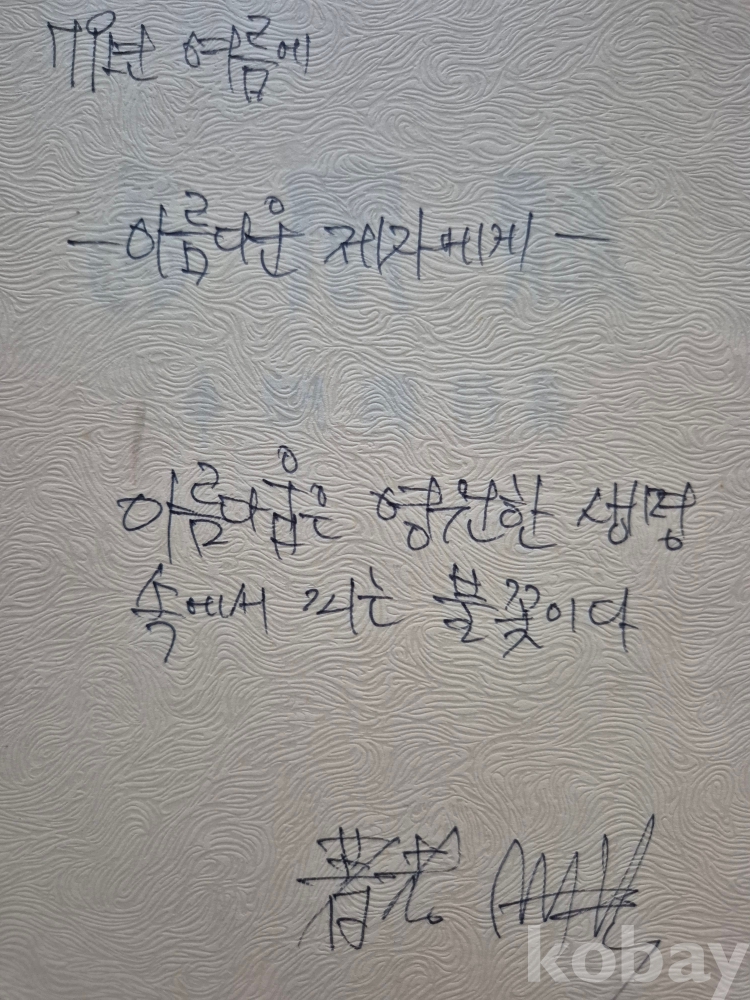 여름에
— 아름다운 제자에게 —
아름다움은 영원한 생명
속에서 피는 불꽃이다
著者
kobay